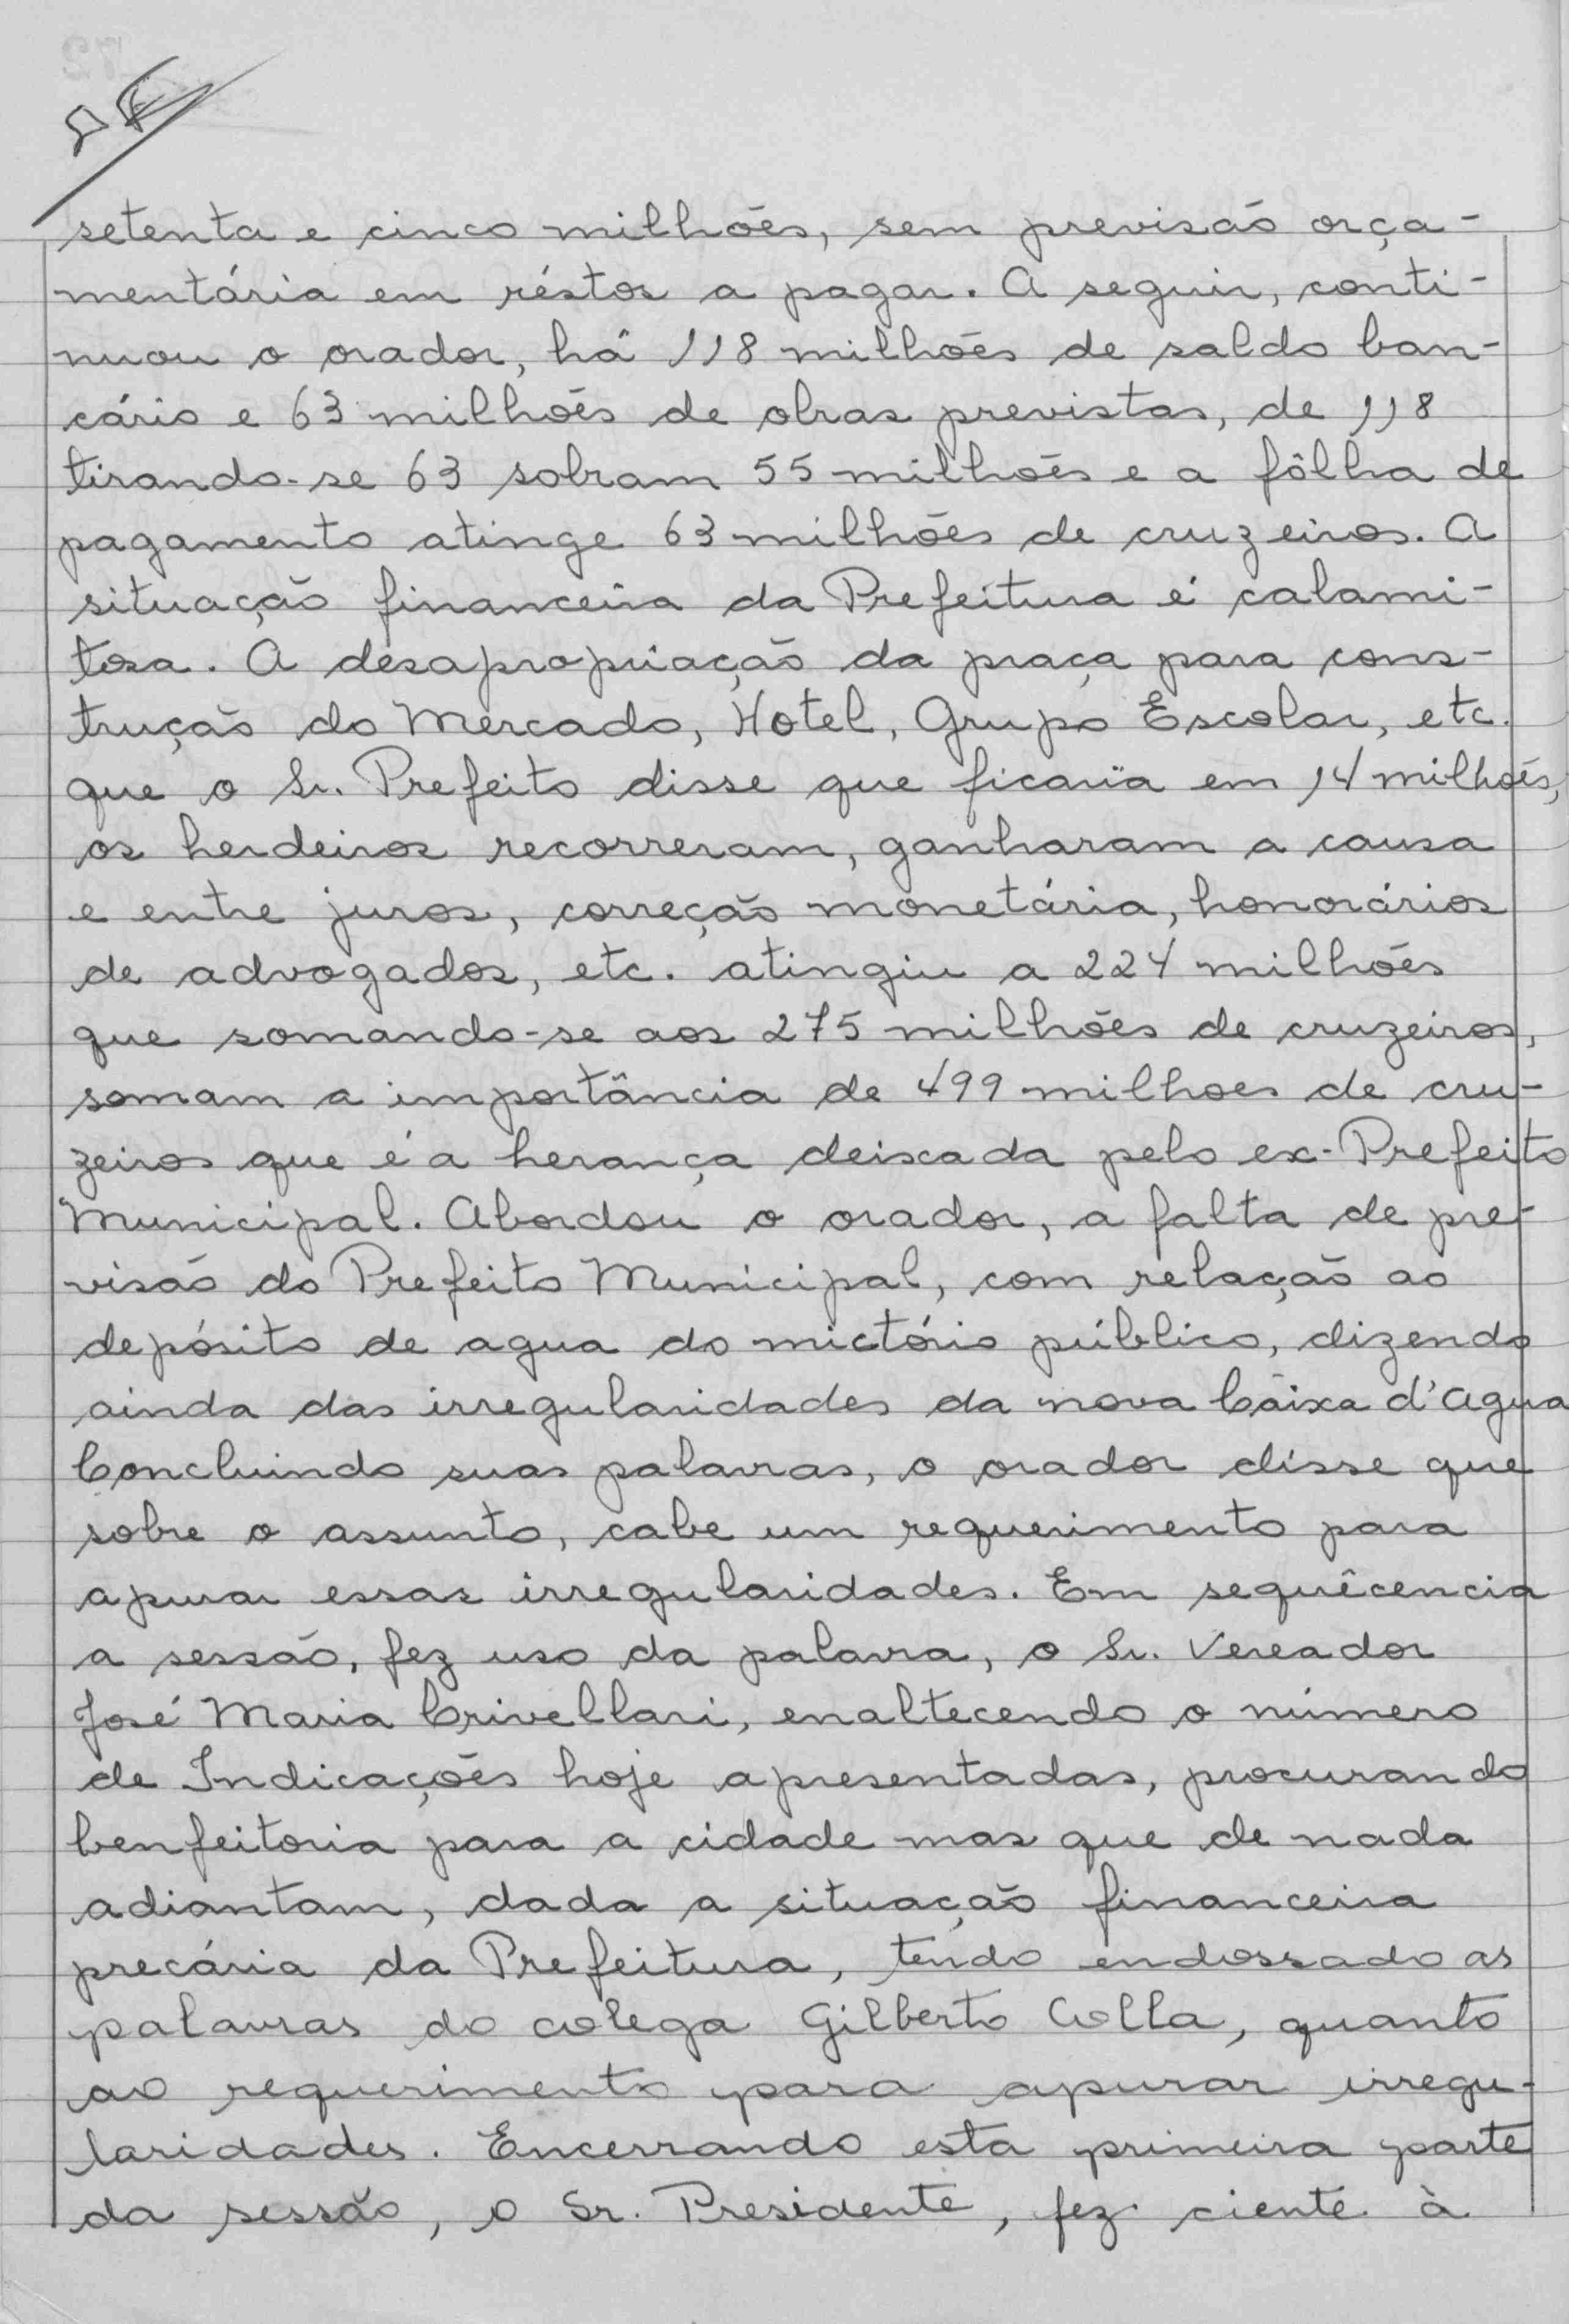 setenta e cinco milhões, sem previsão orça-
mentária em réstos a pagar. A seguir, conti-
nuou o orador, há 118 milhões de saldo ban-
cário e 63 milhões de obras previstas, de 118
tirando-se 63 sobram 55 milhões e a fôlha de
pagamento atinge 63 milhões de cruzeiros. A
situação financeira da Prefeitura é calami-
tosa. A desapropriação da praça para cons-
trução do Mercado, Hotel, Grupo Escolar, etc.
que o Sr. Prefeito disse que ficaria em 14 milhões,
os herdeiros recorreram, ganharam a causa
e entre juros, correção monetária, honorários
de advogados, etc. atingiu a 224 milhões
que somando-se aos 275 milhões de cruzeiros,
somam a importância de 499 milhoes de cru-
zeiros que é a herança deixada pelo ex-Prefeito
Municipal. Abordou o orador, a falta de pre-
visão do Prefeito Municipal, com relação ao
depósito de agua do mictório público, dizendo
ainda das irregularidades da nova Caixa d'Agua
Concluindo suas palavras, o orador disse que
sobre o assunto, cabe um requerimento para
apurar essas irregularidades. Em sequêcencia
a sessão, fez uso da palavra, o Sr. Vereador
José Maria Crivellari, enaltecendo o número
de Indicações hoje apresentadas, procurando
benfeitoria para a cidade mas que de nada
adiantam, dada a situação financeira
precária da Prefeitura, tendo endossado as
palavras do colega Gilberto Colla, quanto
ao requerimento para apurar irregu-
laridades. Encerrando esta primeira parte
da sessão, o Sr. Presidente, fez ciente à